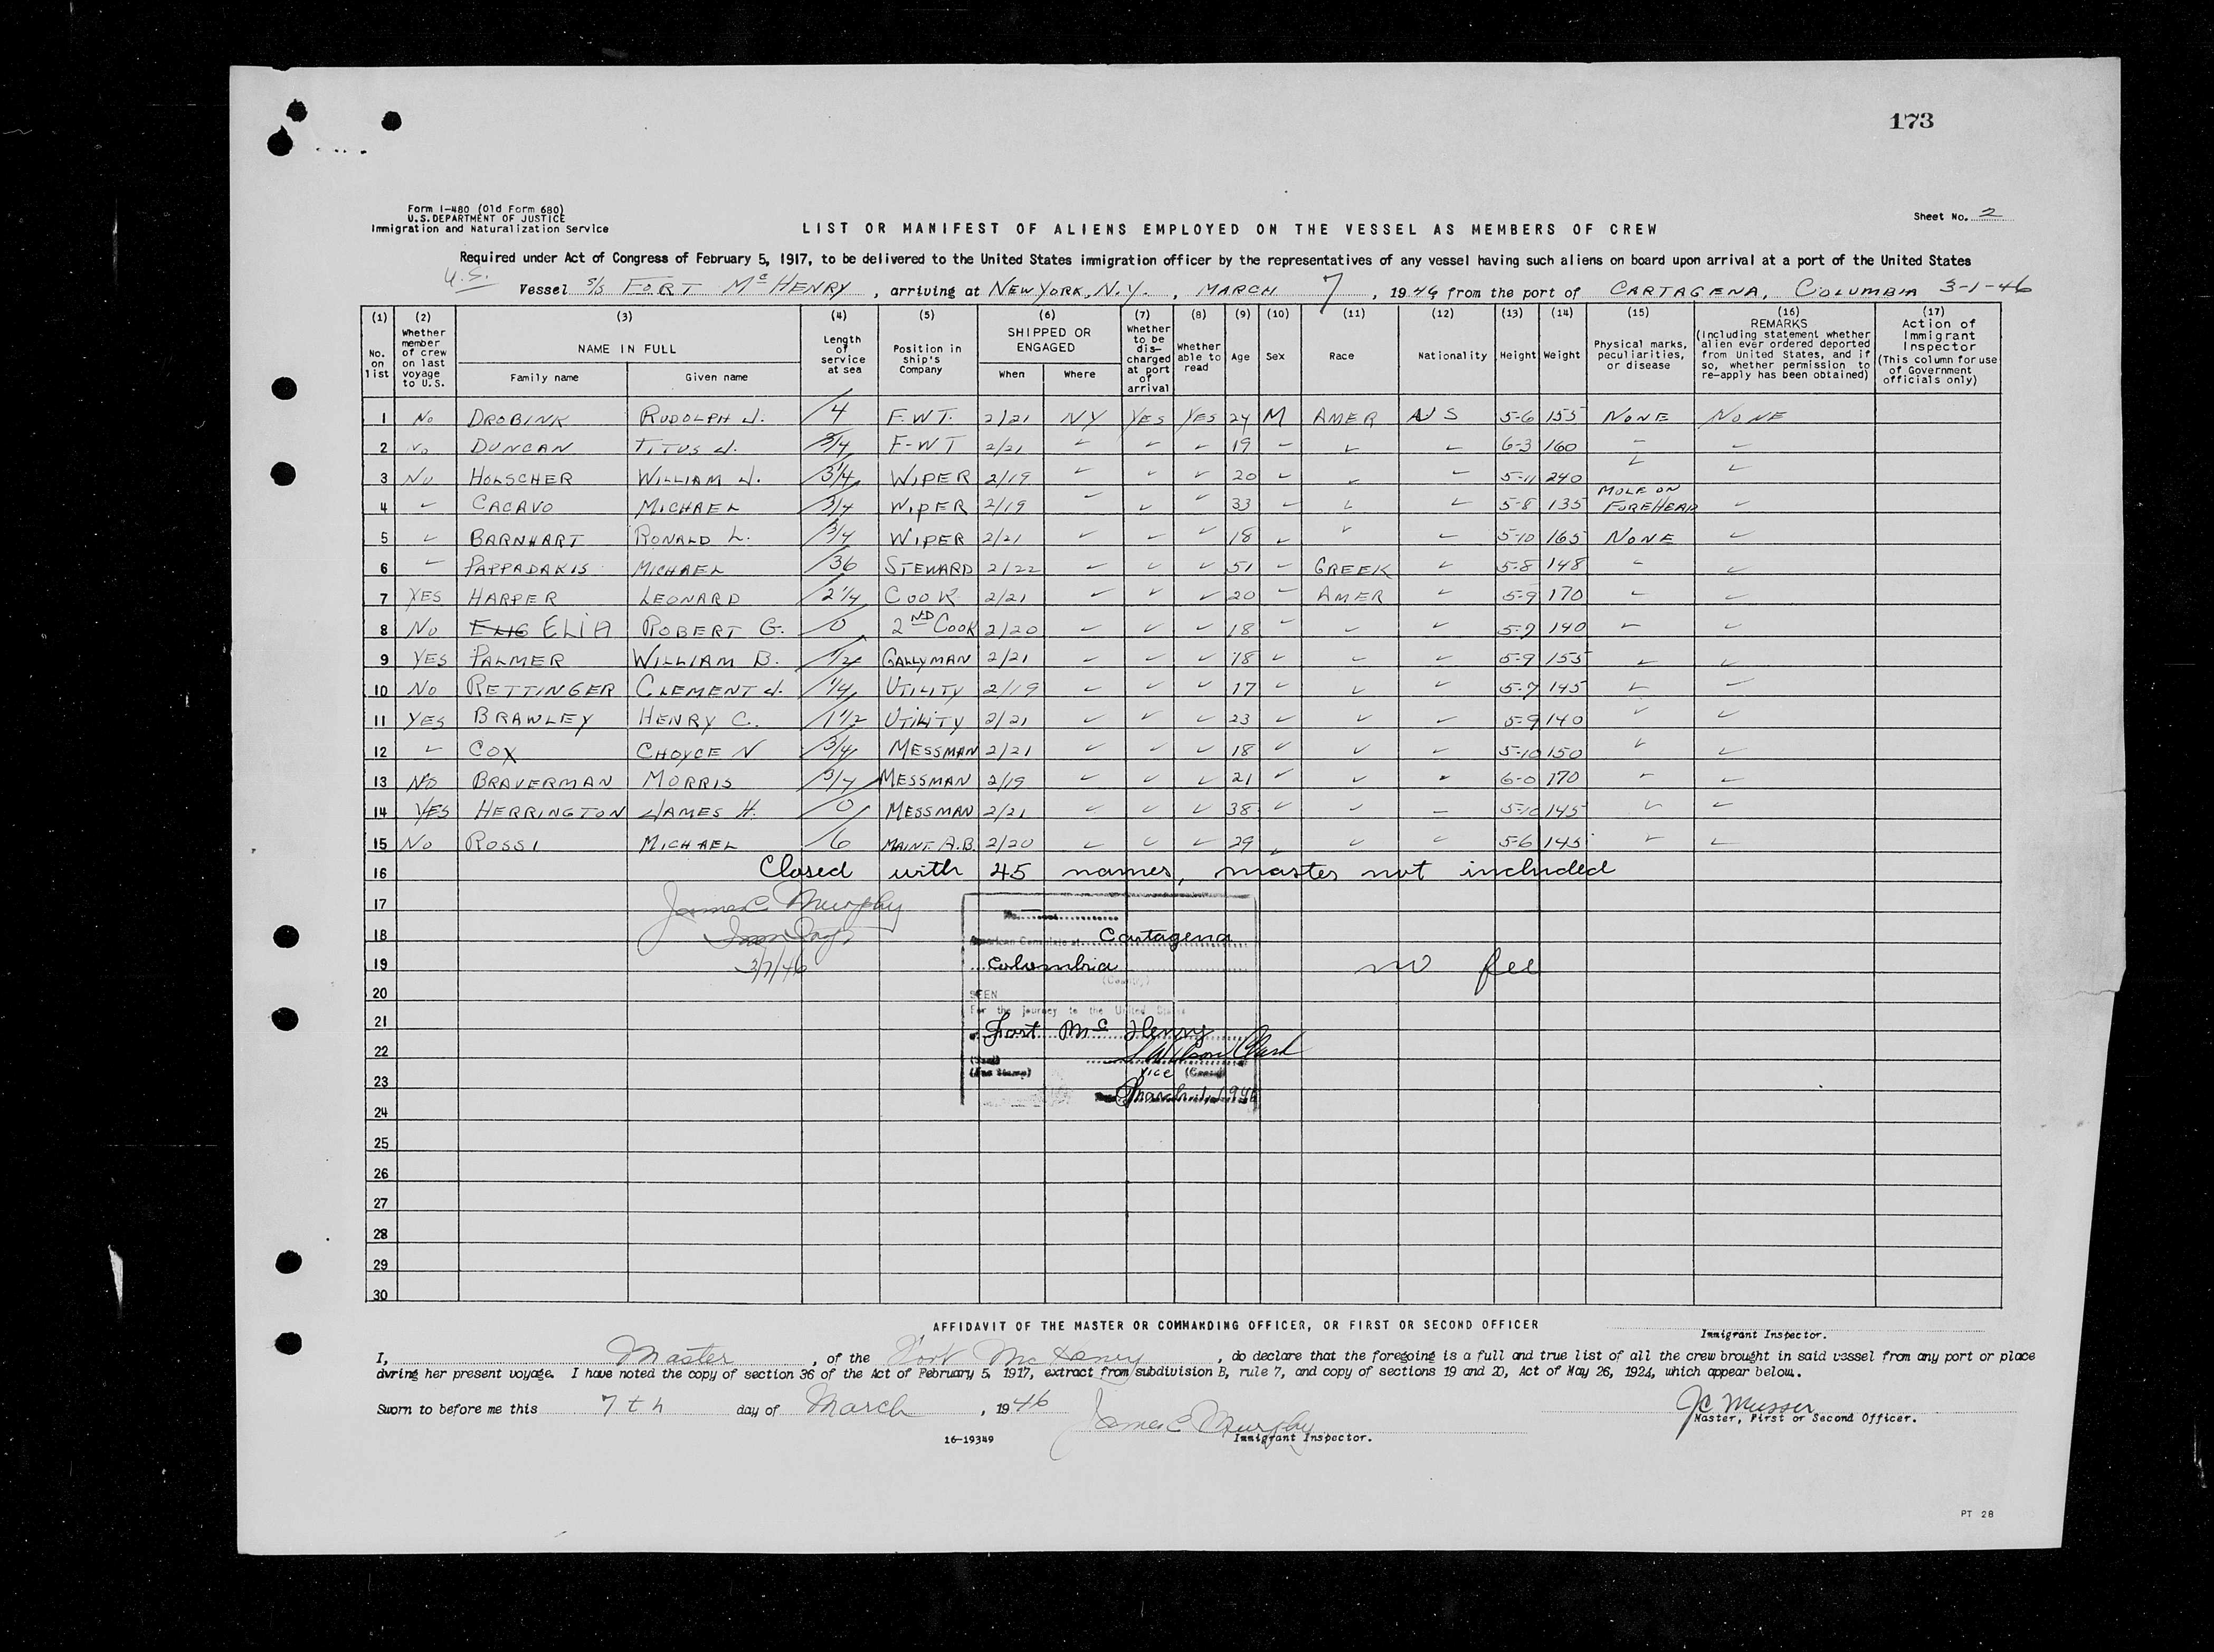 173
Form I-480 (Old Form 680)
U.S. DEPARTMENT OF JUSTICE
Immigration and Naturalization Service
Sheet No. 2
LIST OR MANIFEST OF ALIENS EMPLOYED ON THE VESSEL AS MEMBERS OF CREW
Required under Act of Congress of February 5, 1917, to be delivered to the United States immigration officer by the representatives of any vessel having such aliens on board upon arrival at a port of the United States
U.S.
Vessel S/S FORT McHENRY, arriving at NEW YORK, N.Y., MARCH 7, 1946 from the port of CARTAGENA, COLUMBIA 3-1-46
(1) No. on list
(2) Whether member of crew on last voyage to U.S.
(3) NAME IN FULL Family name Given name
(4) Length of service at sea
(5) Position in ship's Company
(6) SHIPPED OR ENGAGED When Where
(7) Whether to be discharged at port of arrival
(8) Whether able to read
(9) Age
(10) Sex
(11) Race
(12) Nationality
(13) Height
(14) Weight
(15) Physical marks, peculiarities, or disease
(16) REMARKS (Including statement whether alien ever ordered deported from United States, and if so, whether permission to re-apply has been obtained)
(17) Action of Immigrant Inspector (This column for use of Government officials only)
1 No DROBINK RUDOLPH J. 4 F.W.T. 2/21 NY YES YES 24 M AMER U S 5-6 155 NONE NONE
2 No DUNCAN TITUS J. 3/4 F-WT 2/21 ✓ ✓ ✓ 19 ✓ ✓ ✓ 6-3 160 ✓ ✓
3 No HOLSCHER WILLIAM J. 3/4 WIPER 2/19 ✓ ✓ ✓ 20 ✓ ✓ ✓ 5-11 240 ✓ ✓
4 ✓ CACAVO MICHAEL 3/4 WIPER 2/19 ✓ ✓ ✓ 33 ✓ ✓ ✓ 5-8 135 MOLE ON FOREHEAD ✓
5 ✓ BARNHART RONALD L. 3/4 WIPER 2/21 ✓ ✓ ✓ 18 ✓ ✓ ✓ 5-10 165 NONE ✓
6 ✓ PAPPADAKIS MICHAEL 36 STEWARD 2/22 ✓ ✓ ✓ 51 ✓ GREEK ✓ 5-8 148 ✓ ✓
7 YES HARPER LEONARD 2 1/4 COOK 2/21 ✓ ✓ ✓ 20 ✓ AMER ✓ 5-9 170 ✓ ✓
8 No ELIA ROBERT G. 0 2ND COOK 2/20 ✓ ✓ ✓ 18 ✓ ✓ ✓ 5-7 140 ✓ ✓
9 YES PALMER WILLIAM B. 1/2 GALLYMAN 2/21 ✓ ✓ ✓ 18 ✓ ✓ ✓ 5-9 155 ✓ ✓
10 No RETTINGER CLEMENT J. 1/4 UTILITY 2/19 ✓ ✓ ✓ 17 ✓ ✓ 5-7 145 ✓ ✓
11 YES BRAWLEY HENRY C. 1 1/2 UTILITY 2/21 ✓ ✓ ✓ 23 ✓ ✓ ✓ 5-9 140 ✓ ✓
12 ✓ COX CHOYCE N 3/4 MESSMAN 2/21 ✓ ✓ ✓ 18 ✓ ✓ ✓ 5-10 150 ✓ ✓
13 No BRAVERMAN MORRIS 3/4 MESSMAN 2/19 ✓ ✓ ✓ 21 ✓ ✓ ✓ 6-0 170 ✓ ✓
14 YES HERRINGTON JAMES H. 0 MESSMAN 2/21 ✓ ✓ ✓ 38 ✓ ✓ ✓ 5-10 145 ✓ ✓
15 No ROSSI MICHAEL 6 MAINT. A.B. 2/20 ✓ ✓ ✓ 29 ✓ ✓ ✓ 5-6 145 ✓ ✓
16 Closed with 45 names, master not included
17 James C. Murphy
18
American Consulate at Cartagena
19 3/7/46
Columbia no fee
(Country)
20
SEEN
For the journey to the United States
21
Fort Mc Henry
22
Wilson Clark
(Seal)
(Fee Stamp) Vice (Consul)
23
March 1, 1946
24
25
26
27
28
29
30
AFFIDAVIT OF THE MASTER OR COMMANDING OFFICER, OR FIRST OR SECOND OFFICER
Immigrant Inspector.
I, Master, of the Fort McHenry, do declare that the foregoing is a full and true list of all the crew brought in said vessel from any port or place
during her present voyage. I have noted the copy of section 36 of the Act of February 5, 1917, extract from subdivision B, rule 7, and copy of sections 19 and 20, Act of May 26, 1924, which appear below.
Sworn to before me this 7th day of March, 1946
JC Musser
Master, First or Second Officer.
James C Murphy
16-19349
Immigrant Inspector.
PT 28